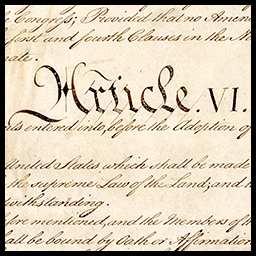 Congress; Provided that no Amen
first and fourth Clauses in the N
ate.
Article. VI.
ts entered into, before the Adoption of
United States which shall be made
the supreme Law of the Land; and
withstanding.
ore mentioned, and the Members of th
all be bound by Oath or Affirmation